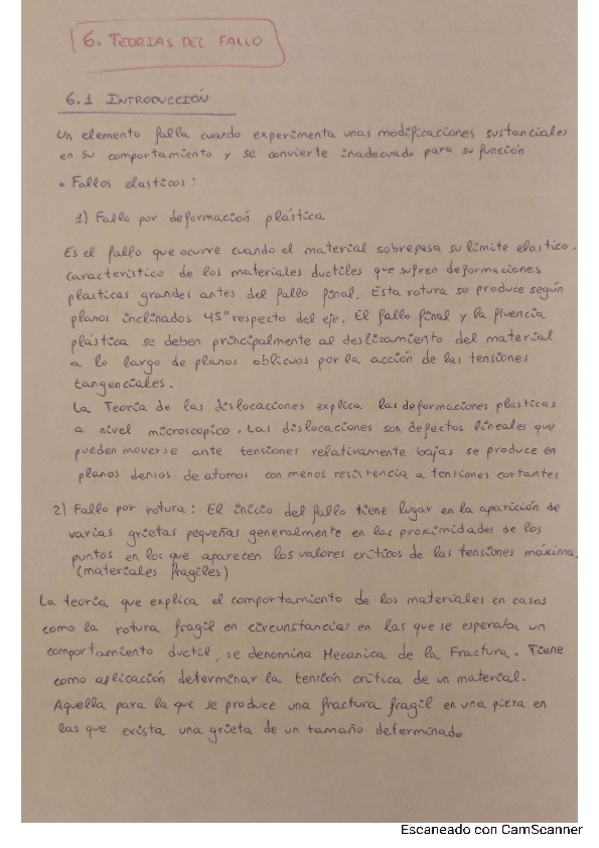 6. TEORIAS DEL FALLO
6.1 INTRODUCCIÓN
Un elemento falla cuando experimenta unas modificaciones sustanciales
en su comportamiento y se convierte inadecuado para su función
• Fallos elasticos:
1) Fallo por deformación plástica
Es el fallo que ocurre cuando el material sobrepasa su límite elastico.
Caracteristico de los materiales ductiles que sufren deformaciones
plasticas grandes antes del fallo final. Esta rotura se produce según
planos inclinados 45° respecto del eje. El fallo final y la fluencia
plástica se deben principalmente al deslizamiento del material
a lo largo de planos oblicuos por la acción de las tensiones
tangenciales.
La Teoría de las dislocaciones explica las deformaciones plasticas
a nivel microscopico. Las dislocaciones son defectos lineales que
pueden moverse ante tensiones relativamente bajas se produce en
planos densos de atomos con menos resistencia a tensiones cortantes
2) Fallo por rotura: El inicio del fallo tiene lugar en la aparición de
varias grietas pequeñas generalmente en las proximidades de los
puntos en los que aparecen los valores críticos de las tensiones máxima,
(materiales fragiles)
La teoría que explica el comportamiento de los materiales en casos
como la rotura fragil en circunstancias en las que se esperaba un
comportamiento ductil, se denomina Mecanica de la Fractura. Tiene
como aplicación determinar la tensión critica de un material.
Aquella para la que se produce una fractura fragil en una pieza en
las que exista una grieta de un tamaño determinado
Escaneado con CamScanner